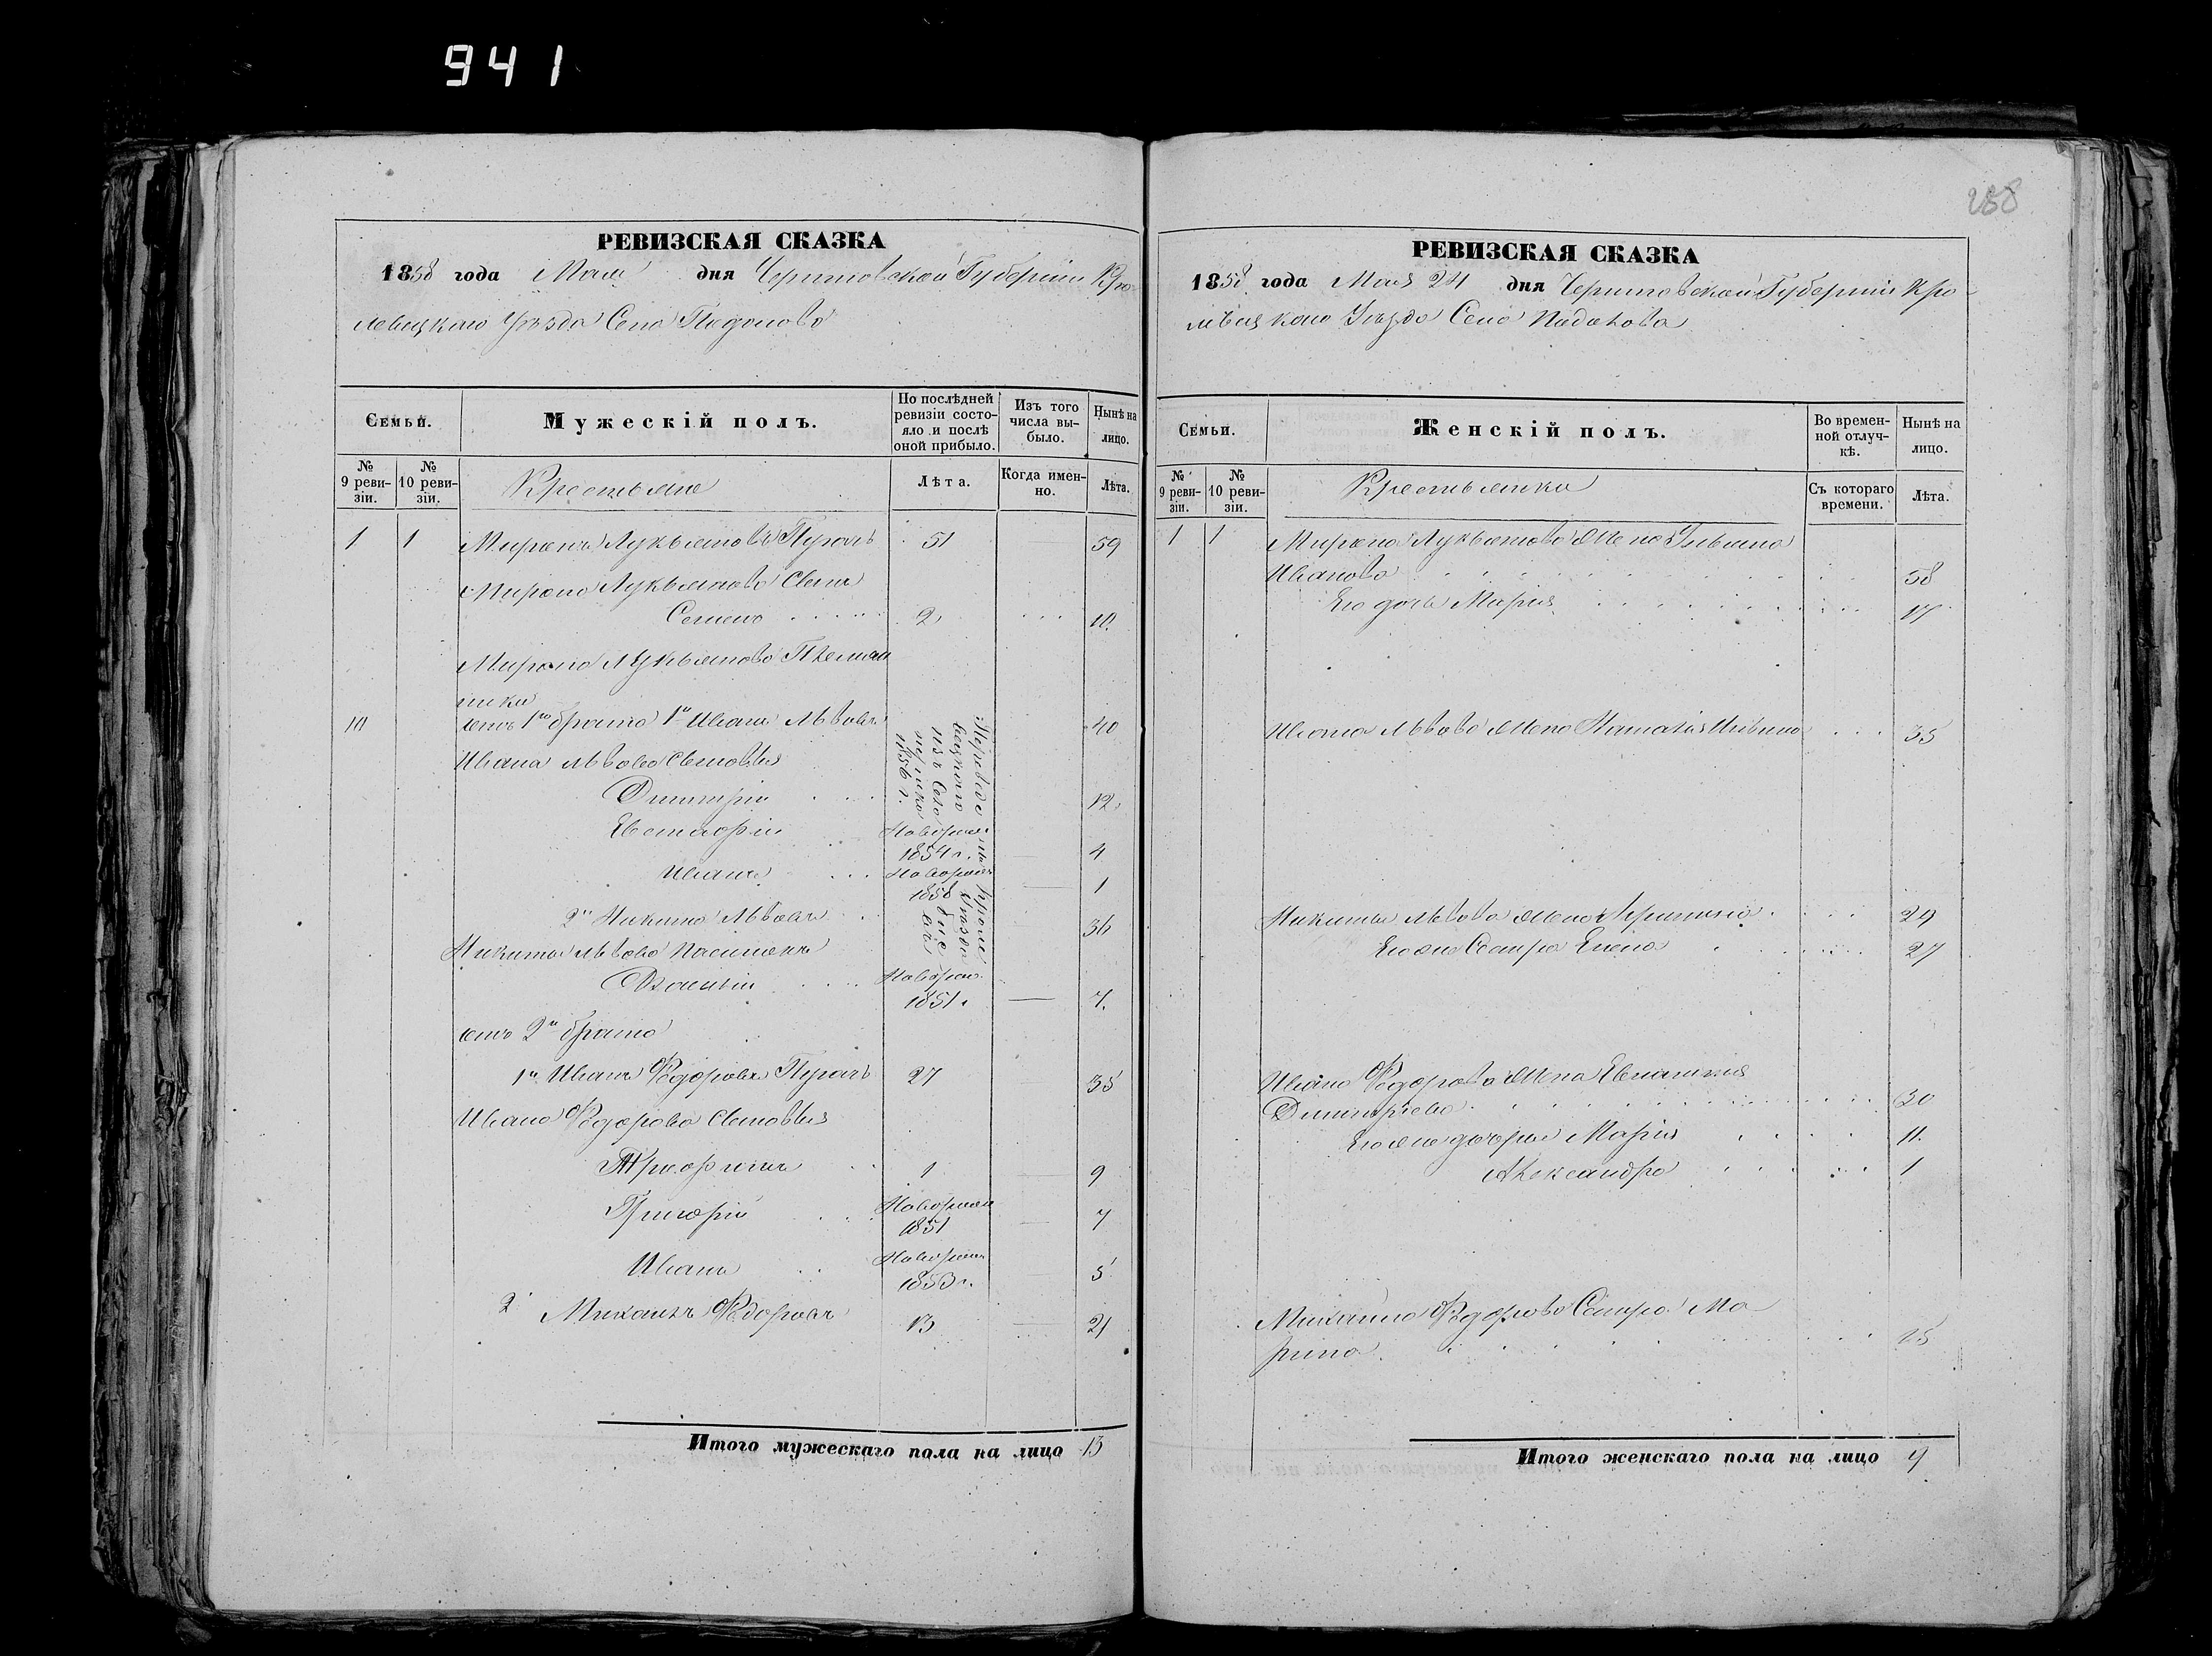 941
258
РЕВИЗСКАЯ СКАЗКА
1858 года Мая дня Черниговской Губернiи Кро
левецкаго Уѣзда Села Подолова
Семьи.
Мужескiй полъ.
По послѣдней ревизiи состояло и послѣ оной прибыло.
Изъ того числа выбыло.
Нынѣ на лицо.
№ 9 ревизiи.
№ 10 ревизiи.
Крестьяне
Лѣта.
Когда именно.
Лѣта.
1 1 Миронъ Лукьяновъ Пугачъ 51 59
Мирона Лукьянова Сынъ
Семенъ 2 10.
Мирона Лукьянова Племян
ники
10 отъ 1го брата 1й Иванъ Львовъ 40
Ивана Львова Сыновья
Димитрiй 12.
Евстафiй Новорож 1854 г. 4
Иванъ Новорож 1858 1
2й Никита Львовъ 36
Никиты Львова Пасинокъ
Новорож 1851 г. 7.
отъ 2го брата
1й Иванъ Федоровъ Пугачъ 27 35
Ивана Федорова Сыновья
Трофимъ 1 9
Григорiй Новорож 1851 7
Иванъ Новорож 1853 г. 5
2 Михаилъ Федоровъ 13 21
1856 г.
Итого мужескаго пола на лицо 13
РЕВИЗСКАЯ СКАЗКА
1858 года Мая 24 дня Черниговской Губернiи Кро
левецкаго Уѣзда Села Подолова
Семьи.
Женскiй полъ.
Во временной отлучкѣ.
Нынѣ на лицо.
№ 9 ревизiи.
№ 10 ревизiи.
Крестьянки
Съ котораго времени.
Лѣта.
1 1 Мирона Лукьянова жена Ульяна
Иванова 58
Его дочь Марiя 17
Ивана Львова жена 35
Никиты Львова жена 29
Его же Сестра Елена 27
Ивана Федорова жена
Димитрiева 30
Его же дочери Марiя 11.
Александра 1
Михаила Федорова Сестра Ма
рина 15
Итого женскаго пола на лицо 9